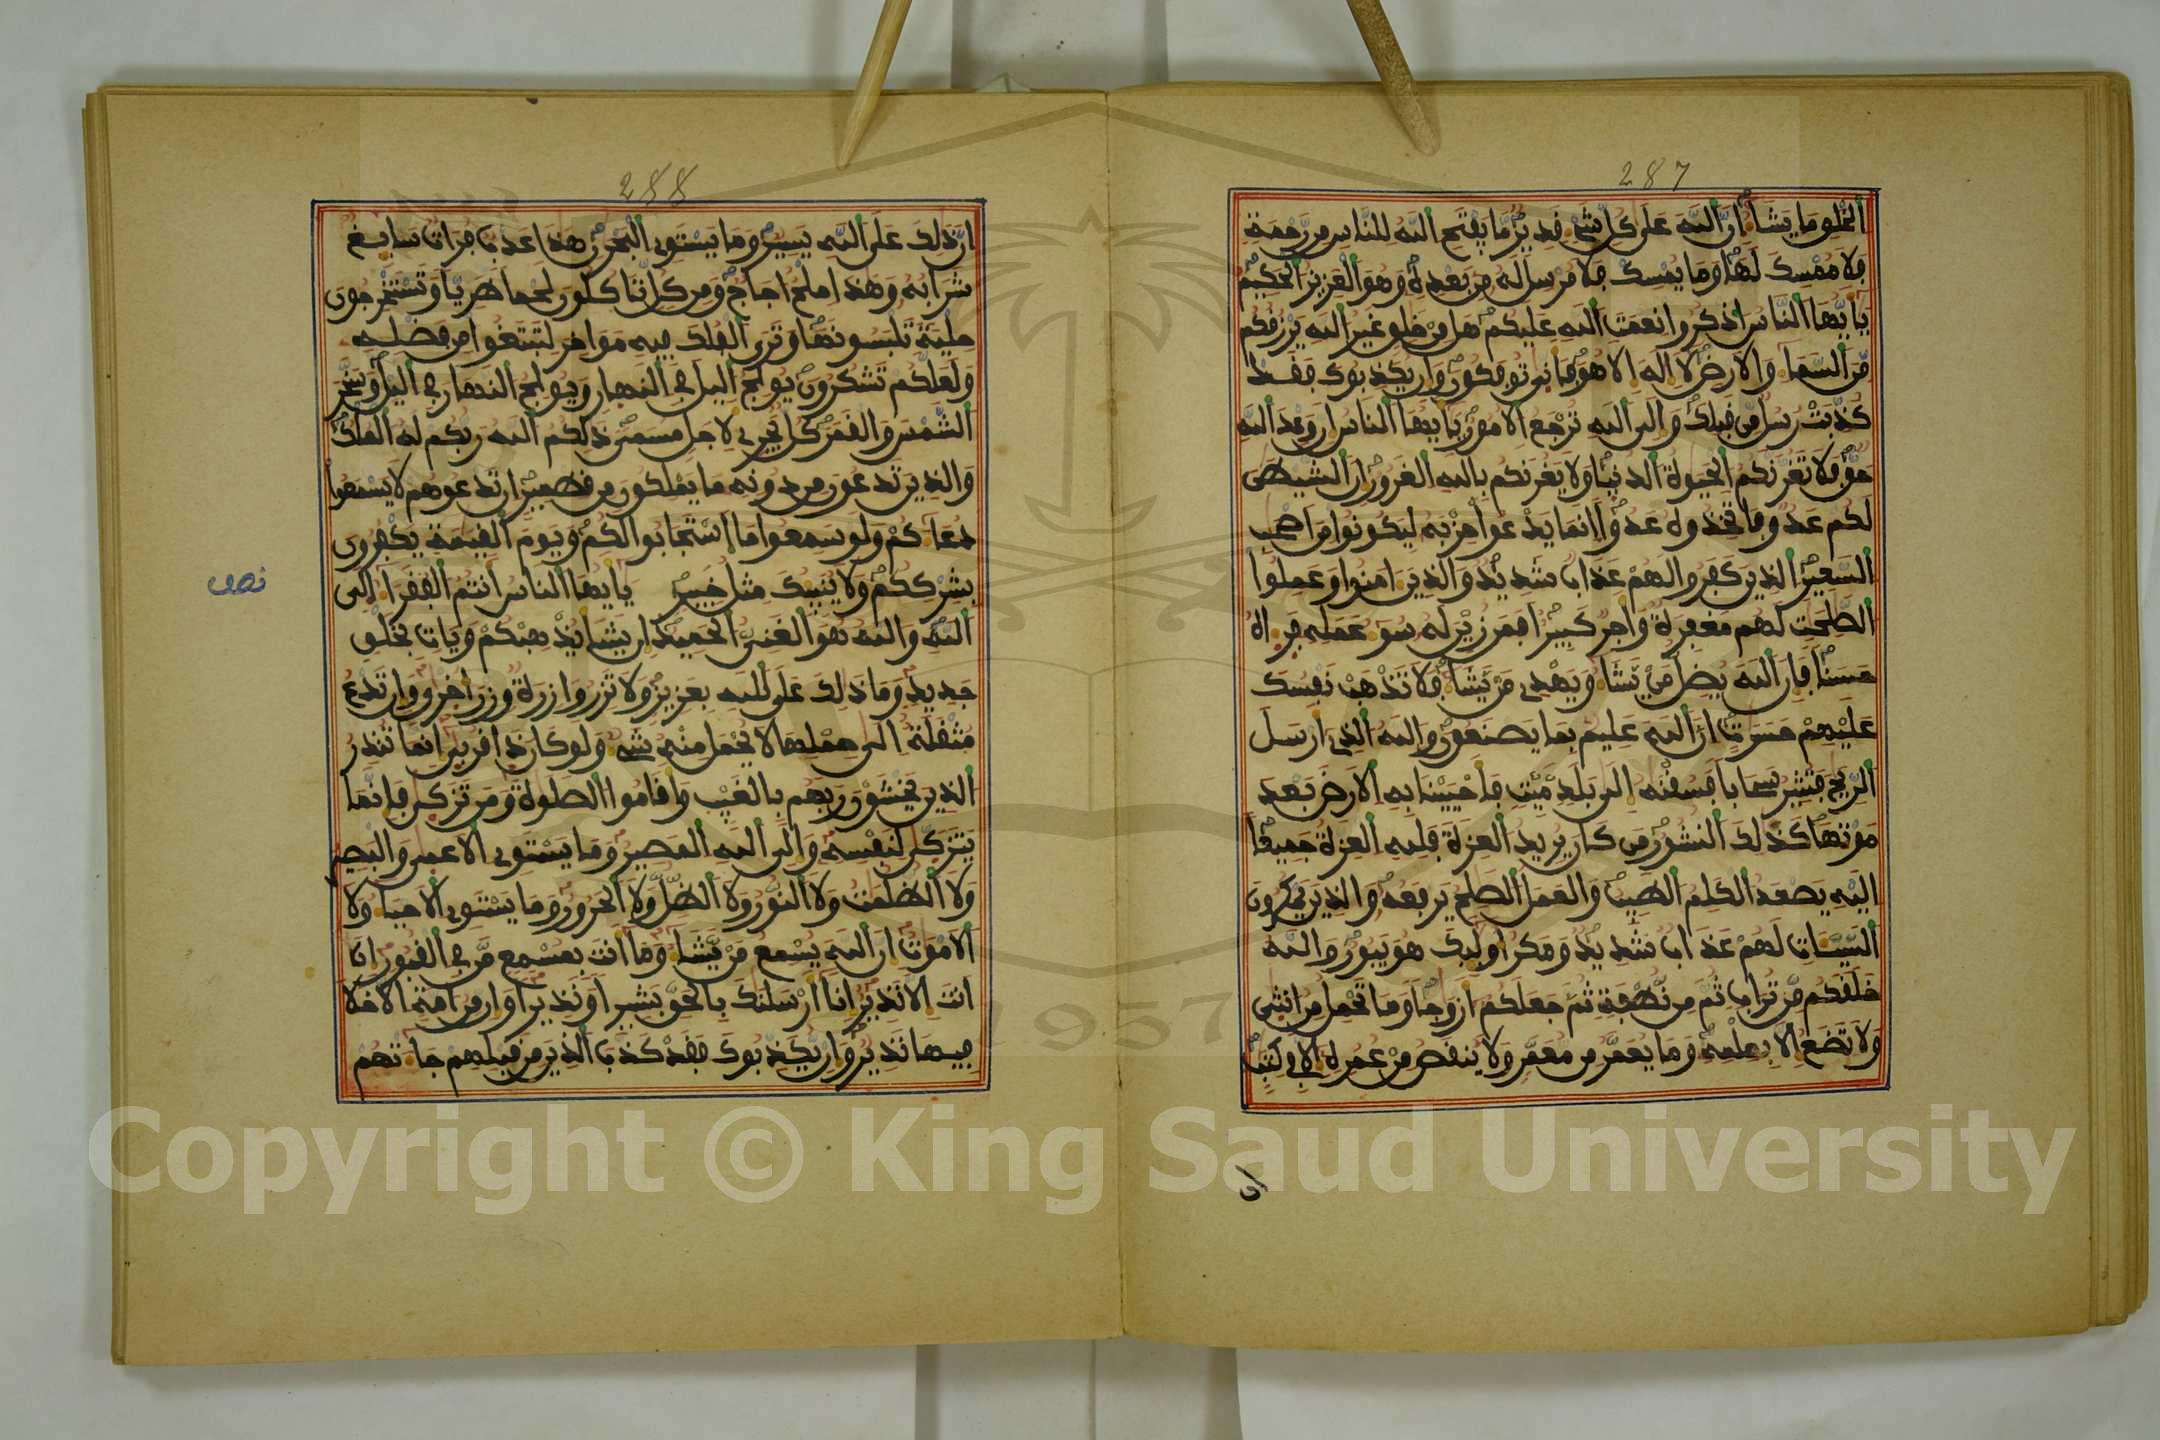 287
الخلق ما يشا ان الله على كل شي قدير ما يفتح الله للناس من رحمة
فلا ممسك لها وما يمسك فلا مرسل له من بعده وهو العزيز الحكيم
يايها الناس اذكروا نعمت الله عليكم هل من خلق غير الله يرزقكم
من السما والارض لا اله الا هو فانى توفكون وان يكذبوك فقد
كذبت رسل من قبلك والى الله ترجع الامور يايها الناس ان وعد الله
حق فلا تغرنكم الحيوة الدنيا ولا يغرنكم بالله الغرور ان الشيطن
لكم عدو فاتخذوه عدوا انما يدعوا حزبه ليكونوا من اصحب
السعير الذين كفروا لهم عذاب شديد والذين امنوا وعملوا
الصلحت لهم مغفرة واجر كبير افمن زين له سو عمله فراه
حسنا فان الله يضل من يشا ويهدى من يشا فلا تذهب نفسك
عليهم حسرت ان الله عليم بما يصنعون والله الذى ارسل
الريح فتثير سحابا فسقنه الى بلد ميت فاحيينا به الارض بعد
موتها كذلك النشور من كان يريد العزة فلله العزة جميعا
اليه يصعد الكلم الطيب والعمل الصلح يرفعه والذين يمكرون
السيئات لهم عذاب شديد ومكر اوليك هو يبور والله
خلقكم من تراب ثم من نطفة ثم جعلكم ازوجا وما تحمل من انثى
ولا تضع الا بعلمه وما يعمر من معمر ولا ينقص من عمره الا في كتب
288
ان ذلك على الله يسير وما يستوى البحرن هذا عذب فرات سايغ
شرابه وهذا ملح اجاج ومن كل تاكلون لحما طريا وتستخرجون
حلية تلبسونها وترى الفلك فيه مواخر لتبتغوا من فضله
ولعلكم تشكرون يولج اليل في النهار ويولج النهار في اليل وسخر
الشمس والقمر كل يجرى لاجل مسمى ذلكم الله ربكم له الملك
والذين تدعون من دونه ما يملكون من قطمير ان تدعوهم لا يسمعوا
دعاكم ولو سمعوا ما استجابوا لكم ويوم القيمة يكفرون
بشرككم ولا ينبيك مثل خبير يايها الناس انتم الفقرا الى
الله والله هو الغنى الحميد ان يشا يذهبكم ويات بخلق
جديد وما ذلك على الله بعزيز ولا تزر وازرة وزر اخرى وان تدع
مثقلة الى حملها لا يحمل منه شي ولو كان ذا قربى انما تنذر
الذين يخشون ربهم بالغيب واقاموا الصلوة ومن تزكى فانما
يتزكى لنفسه والى الله المصير وما يستوى الاعمى والبصير
ولا الظلمت ولا النور ولا الظل ولا الحرور وما يستوى الاحيا ولا
الاموت ان الله يسمع من يشا وما انت بمسمع من في القبور ان
انت الا نذير انا ارسلنك بالحق بشيرا ونذيرا وان من امة الا خلا
فيها نذير وان يكذبوك فقد كذب الذين من قبلهم جاتهم
نصف
ان
1957
Copyright © King Saud University